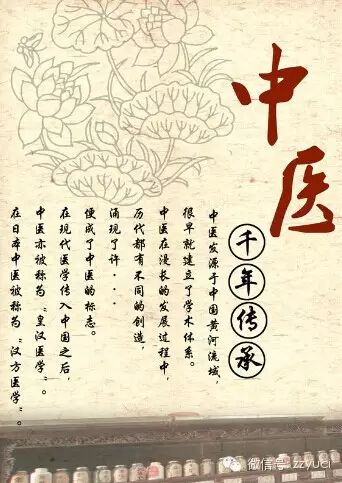 中医
千年传承
中医发源于中国黄河流域，
很早就建立了学术体系。
中医在漫长的发展过程中，
历代都有不同的创造，
涌现了许...
便成了中医的标志。
在现代医学传入中国之后，
中医亦被称为“皇汉医学”。
在日本中医被称为“汉方医学”。
微信号: zzyuci